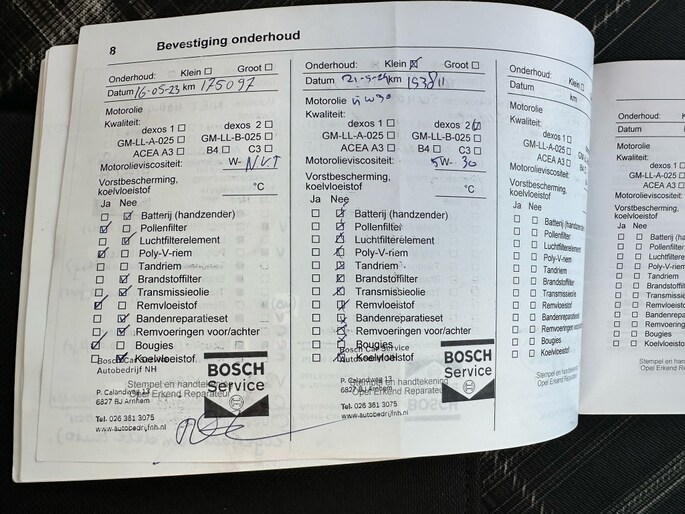 8 Bevestiging onderhoud
Onderhoud: Klein Groot
Datum 16-05-23 km 175097
Motorolie
Kwaliteit:
dexos 1 dexos 2
GM-LL-A-025 GM-LL-B-025
ACEA A3 B4 C3
Motorolieviscositeit: W- N.V.T
Vorstbescherming,
koelvloeistof °C
Ja Nee
Batterij (handzender)
Pollenfilter
Luchtfilterelement
Poly-V-riem
Tandriem
Brandstoffilter
Transmissieolie
Remvloeistof
Bandenreparatieset
Remvoeringen voor/achter
Bougies
Koelvloeistof
Bosch Car Service
Autobedrijf NH
Stempel en handtekening
Opel Erkend Reparateur
P. Calandweg 13
6827 BJ Arnhem
Tel. 026 361 3075
www.autobedrijfnh.nl
BOSCH
Service
Onderhoud: Klein Groot
Datum km
Motorolie
Kwaliteit:
dexos 1 dexos 2
GM-LL-A-025 GM-LL-B-025
ACEA A3 B4 C3
Motorolieviscositeit: 5W- 30
Vorstbescherming,
koelvloeistof °C
Ja Nee
Batterij (handzender)
Pollenfilter
Luchtfilterelement
Poly-V-riem
Tandriem
Brandstoffilter
Transmissieolie
Remvloeistof
Bandenreparatieset
Remvoeringen voor/achter
Bougies
Koelvloeistof
Bosch Car Service
Autobedrijf NH
Stempel en handtekening
Opel Erkend Reparateur
P. Calandweg 13
6827 BJ Arnhem
Tel. 026 361 3075
www.autobedrijfnh.nl
BOSCH
Service
Onderhoud: Klein
Datum km
Motorolie
Kwaliteit:
dexos 1
GM-LL-A-025
ACEA A3
Motorolieviscositeit:
Vorstbescherming,
koelvloeistof
Ja Nee
Batterij (handze
Pollenfilter
Luchtfilterelement
Poly-V-riem
Tandriem
Brandstoffilter
Transmissieolie
Remvloeistof
Bandenreparatie
Remvoeringen
Bougies
Koelvloeistof
Stempel en
Opel Erkend
Onderhoud:
Datum
Motorolie
Kwaliteit:
dexos 1
GM-LL-A-025
ACEA A3
Motorolieviscositeit:
Vorstbescherming,
koelvloeistof
Ja Nee
Batterij (handzender
Pollenfilter
Luchtfilterelement
Poly-V-riem
Tandriem
Brandstoffilter
Transmissieolie
Remvloeistof
Bandenreparatieset
Remvoeringen voor/
Bougies
Koelvloeistof
Stempel en handtek
Opel Erkend Reparat